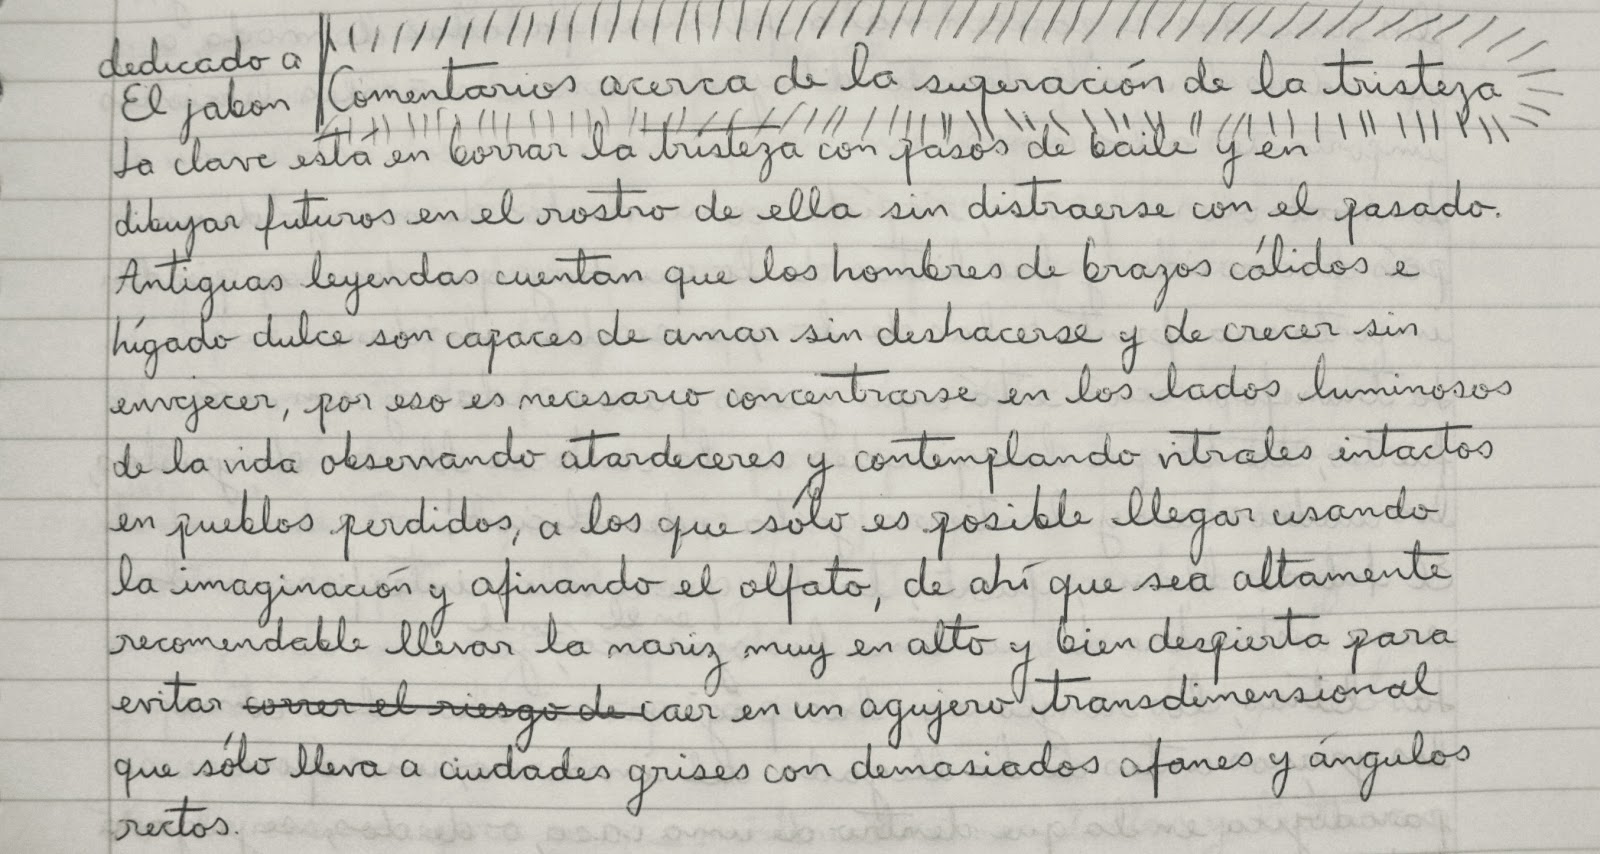 dedicado a
El jabon
Comentarios acerca de la superación de la tristeza
La clave está en borrar la tristeza con pasos de baile y en
dibujar futuros en el rostro de ella sin distraerse con el pasado.
Antiguas leyendas cuentan que los hombres de brazos cálidos e
hígado dulce son capaces de amar sin deshacerse y de crecer sin
envejecer, por eso es necesario concentrarse en los lados luminosos
de la vida observando atardeceres y contemplando vitrales intactos
en pueblos perdidos, a los que sólo es posible llegar usando
la imaginación y afinando el olfato, de ahí que sea altamente
recomendable llevar la nariz muy en alto y bien despierta para
evitar correr el riesgo de caer en un agujero transdimensional
que sólo lleva a ciudades grises con demasiados afanes y ángulos
rectos.